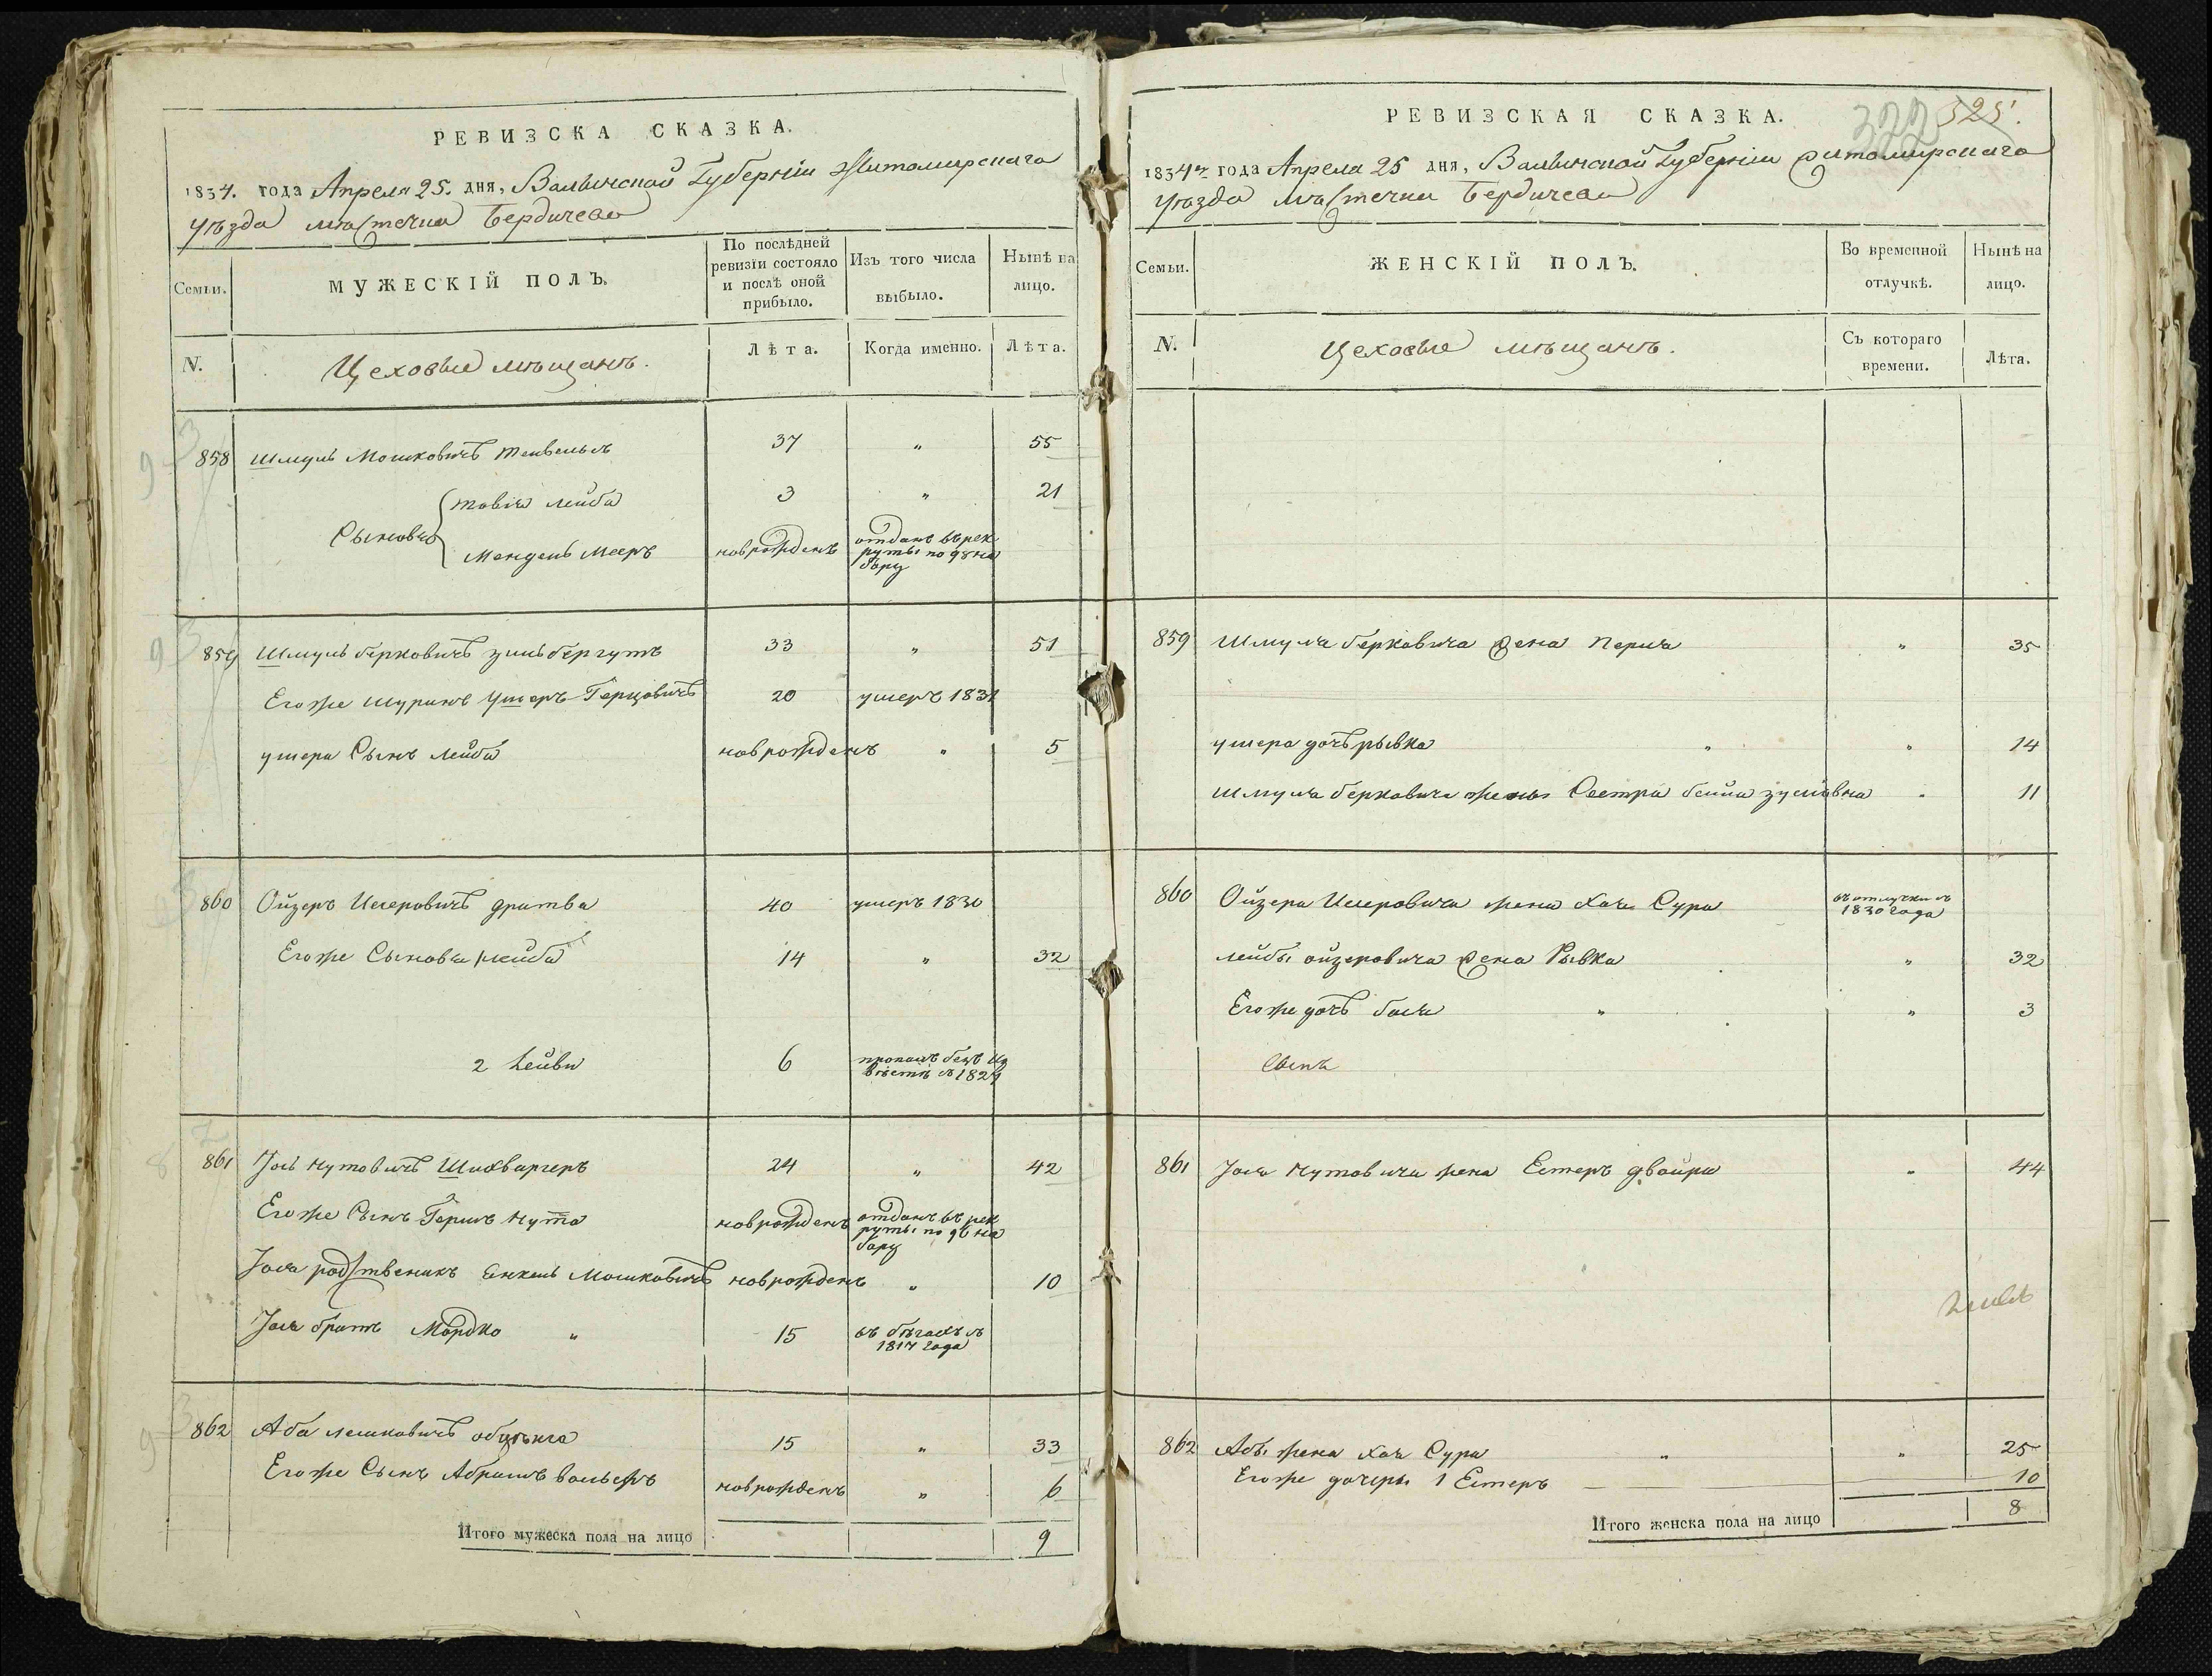 РЕВИЗСКА СКАЗКА.
1834. года Апреля 25. дня, Валынской Губернiи Житомирскаго
уѣзда мѣстечка Бердичева
Семьи.
МУЖЕСКІЙ ПОЛЪ.
По послѣдней ревизіи состояло и послѣ оной прибыло.
Изъ того числа выбыло.
Нынѣ на лицо.
N.
Цеховые мѣщанъ.
Лѣта.
Когда именно.
Лѣта.
858 Шмуль Мошковичъ 37 " 55
Сыновья
товiя лейба 3 " 21
Мендель Мееръ новрожденъ отданъ въ рек
руты по 98 на
бору
859 Шмуль берковичъ зильбергутъ 33 " 51
Егоже шуринъ Ушеръ Герцовичъ 20 умеръ 1831
ушера Сынъ лейба новрожденъ " 5
860 Ойзеръ Исеровичъ дратва 40 умеръ 1830
Егоже Сыновья 1 лейба 14 " 32
2 Лейви 6 пропалъ безъ из
вѣстѣ съ 1829
861 Iось нутовичъ Шихваргеръ 24 " 42
Егоже Сынъ Гершъ нута новрожденъ отданъ въ рек
руты по 96 на
бору
Iося родственикъ Енкель Мошковичъ новрожденъ " 10
Iося братъ Мордко " 15 въ бѣгахъ съ
1817 года
862 Аба лешковичъ 15 " 33
Егоже Сынъ Абрамъ вольфъ новрожденъ " 6
Итого мужеска пола на лицо 9
РЕВИЗСКАЯ СКАЗКА.
322 325.
1834го года Апреля 25 дня, Валынской Губернiи Житомирскаго
уѣзда мѣстечка Бердичева
Семьи.
ЖЕНСКІЙ ПОЛЪ.
Во временной отлучкѣ.
Нынѣ на лицо.
N.
Цеховые мѣщанъ.
Съ котораго времени.
Лѣта.
859 Шмуля берковича жена Перля " 35
ушера дочь рывка " " 14
Шмуля берковича жены Сестра бейла " 11
860 Ойзера Исеровича жена Хая Сура въ отлучки съ
1830 года
лейбы ойзеровича жена Рывка " 32
Егоже дочь бася " " 3
861 Iося Нутовича жена Естеръ двойра " 44
862 Абы жена Хая Сура " " 25
Егоже дочери 1 Естеръ 10
Итого женска пола на лицо 8